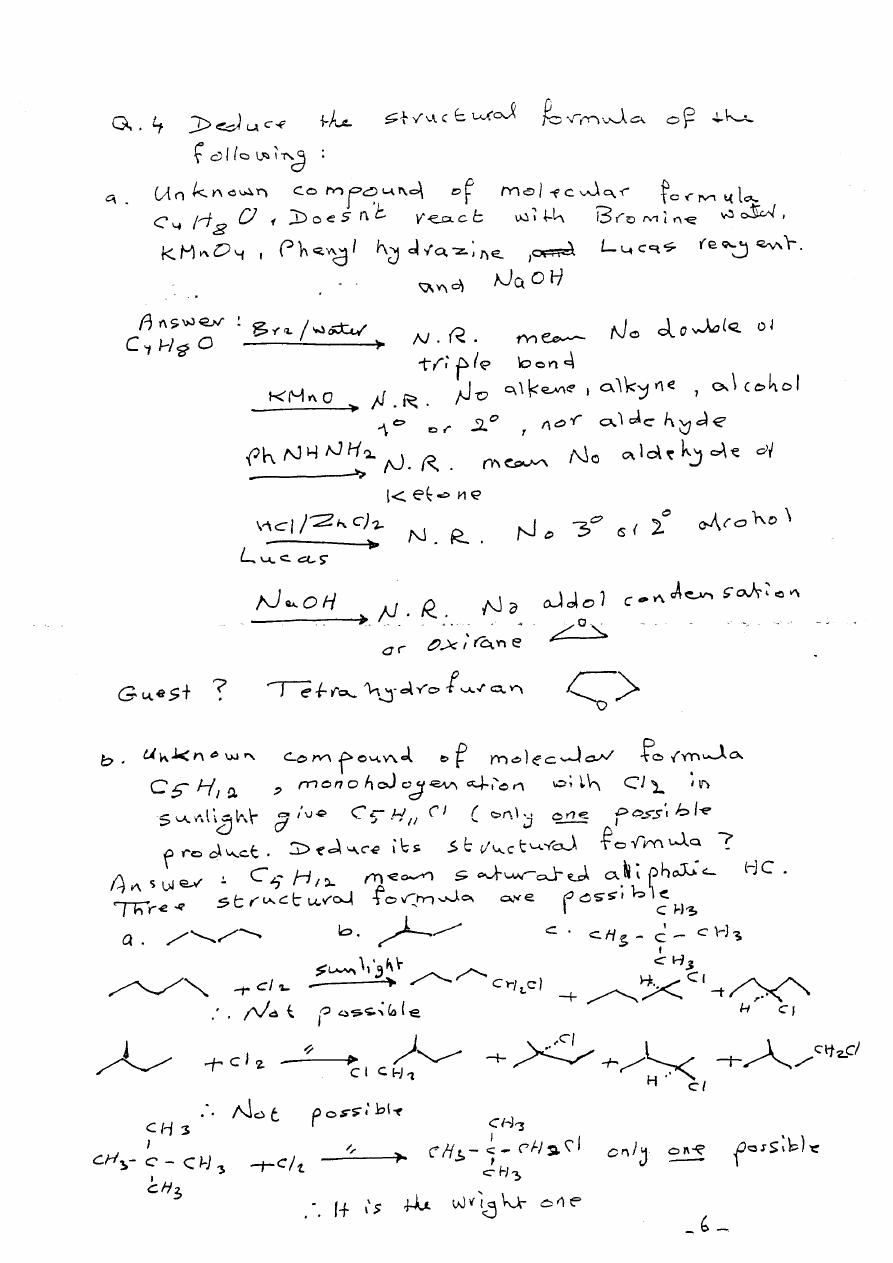 Q.4 Deduce the structural formula of the
following :
a. Unknown compound of molecular formula
C4H8O, Doesn't react with Bromine water,
KMnO4, Phenyl hydrazine, Lucas reagent.
and NaOH
Answer : Br2/water N.R. mean No double or
C4H8O triple bond
KMnO N.R. No alkene, alkyne, alcohol
1° or 2°, nor aldehyde
PhNHNH2 N.R. mean No aldehyde or
Ketone
HCl/ZnCl2 N.R. No 3° or 2° alcohol
Lucas
NaOH N.R. No aldol condensation
or oxirane O
Guest ? Tetrahydrofuran O
b. Unknown compound of molecular formula
C5H12, monohalogenation with Cl2 in
sunlight give C5H11Cl (only one possible
product. Deduce its structural formula ?
Answer : C5H12 mean saturated aliphatic HC.
Three structural formula are possible
a. b. c. CH3
CH3-C-CH3
CH3
+Cl2 sunlight CH2Cl + H Cl + H Cl
∴ Not possible
+Cl2 〃 ClCH2 + Cl + H Cl + CH2Cl
∴ Not possible
CH3 CH3
CH3-C-CH3 +Cl2 〃 CH3-C-CH2Cl only one possible
CH3 CH3
∴ It is the wright one
-6-